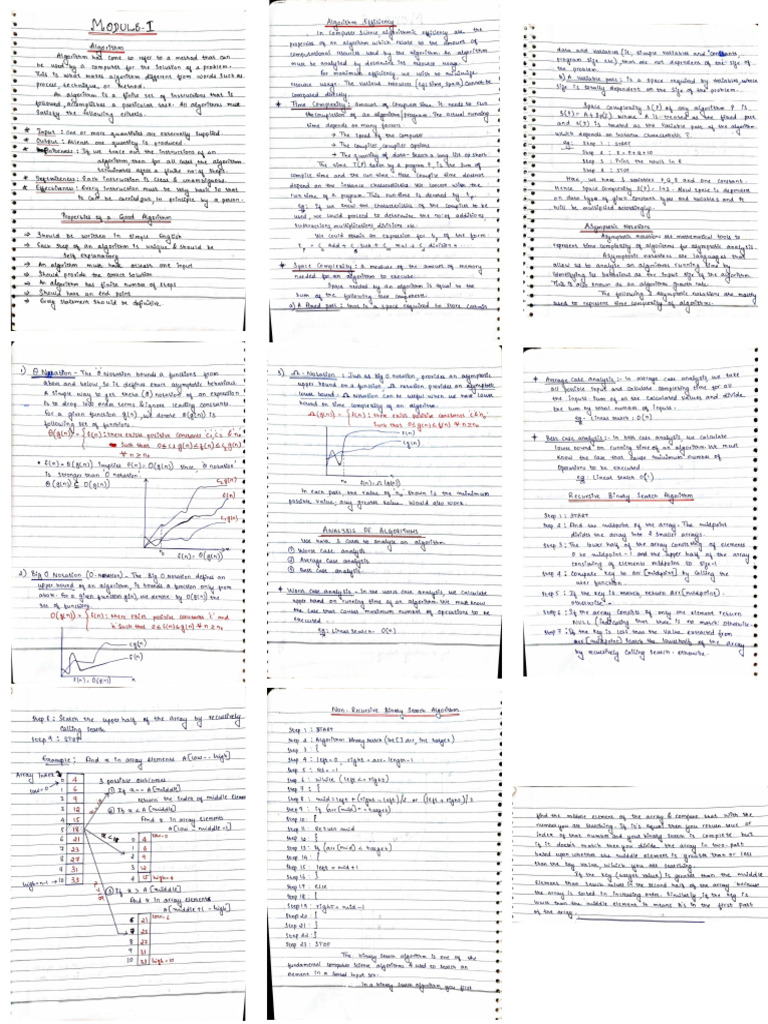 MODULE-I
Algorithm
Algorithm has come to refer to a method that can
be used by a computer for the solution of a problem.
This is what makes algorithm different from words such as
process, technique, or method.
An algorithm is a finite set of instructions that is
followed, accomplishes a particular task. An algorithms must
satisfy the following criteria.
* Input : one or more quantities are externally supplied.
* Output : atleast one quantity is produced.
* Finiteness : If we trace out the instructions of an
algorithm then for all cases the algorithm
terminates after a finite no. of steps.
* Definiteness : Each instruction is clear & unambiguous.
* Effectiveness : Every instruction must be very basic so that
it can be carried out, in principle by a person.
Properties of a Good Algorithm
→ Should be written in simple English
→ Each step of an algorithm is unique & should be
self explanatory
→ An algorithm must have atleast one input
→ Should provide the correct solution
→ An algorithm has finite number of steps
→ Should have an end point
→ Every statement should be definitive.
Algorithm Efficiency
In computer science algorithmic efficiency are the
properties of an algorithm which relate to the amount of
computational resources used by the algorithm. An algorithm
must be analysed to determine its resource usage.
For maximum efficiency we wish to minimize
resource usage. The various resources (eg: time, space) cannot be
compared directly.
* Time Complexity : Amount of computer time it needs to run
the completion of an algorithm/program. The actual running
time depends on many factors
→ The speed of the computer
→ The compiler, compiler options
→ The quantity of data - search a long list or short.
The time T(P) taken by a program P, is the sum of
compile time and the run time. The compile time doesnot
depend on the instance characteristics. We concern with the
run time of a program. This run time is denoted by tp.
Eg: If we knew the characteristics of the compiler to be
used, we could proceed to determine the no. of additions,
subtractions, multiplications, divisions etc.
We could obtain an expression for tp of the form
* Space Complexity : A measure of the amount of memory
needed for an algorithm to execute.
Space needed by an algorithm is equal to the
sum of the following two components
a) A fixed part : that is a space required to store certain
data and variables (ie, simple variables and constants,
program size etc), that are not dependent of the size of
the problem.
b) A variable part : Is a space required by variables, whose
size is totally dependent on the size of the problem.
Space complexity S(P) of any algorithm P is
S(P) = A + Sp(I) where A is treated as the fixed part
and S(I) is treated as the variable part of the algorithm
which depends on instance characteristic I.
eg: Step 1 : START
Step 2 : R = P + Q + 10
Step 3 : Print the result is R
Step 4 : STOP
Here, we have 3 variables P, Q, R and one constant.
Hence space complexity S(P) = 1+3. Now space is dependent
on data type of given constant types and variables and it
will be multiplied accordingly.
Asymptotic Notations
Asymptotic notations are mathematical tools to
represent time complexity of algorithms for asymptotic analysis.
Asymptotic notations are languages that
allow us to analysis an algorithms running time by
identifying its behaviour as the input size of the algorithm.
This is also known as an algorithm growth rate.
The following 3 asymptotic notations are mostly
used to represent time complexity of algorithms.
1) θ Notation - The θ notation bounds a functions from
above and below, so it defines exact asymptotic behaviour.
A simple way to get theta (θ) notation of an expression
is to drop low order terms & ignore leading constants.
For a given function g(n), we denote θ(g(n)) is
following set of functions.
θ(g(n)) = { f(n) : there exist positive constants c1, c2 & n0
such that 0 ≤ c1g(n) ≤ f(n) ≤ c2g(n)
∀ n ≥ n0
* f(n) = θ(g(n)) implies f(n) = O(g(n)) since, θ notation
is stronger than O notation.
θ(g(n)) ⊆ O(g(n))
c2g(n)
f(n)
c1g(n)
f(n) = θ(g(n))
2) Big O Notation (O-notation) - The Big O notation defines an
upper bound of an algorithm, it bounds a function only from
above. For a given function g(n), we denote by O(g(n)) the
set of functions.
O(g(n)) = { f(n) : there exist positive constants 'c' and
n0 such that 0 ≤ f(n) ≤ cg(n) ∀ n ≥ n0
cg(n)
f(n)
f(n) = O(g(n))
3) Ω - Notation : Just as Big O notation, provides an asymptotic
upper bound on a function, Ω notation provides an asymptotic
lower bound. Ω notation can be useful when we have lower
bound on time complexity of an algorithm.
Ω(g(n)) = { f(n) : there exist positive constants c & n0
f(n)
cg(n)
f(n) = Ω(g(n))
In each part, the value of n0 shown is the minimum
possible value, any greater value would also work.
ANALYSIS OF ALGORITHMS
We have 3 cases to analyse an algorithm
① Worse case analysis
② Average case analysis
③ Best case analysis
* Worse case analysis - In the worse case analysis, we calculate
upper bound on running time of an algorithm. We must know
the case that causes maximum number of operations to be
executed.
eg: Linear search - O(n)
* Average case analysis :- In average case analysis, we take
all possible input and calculate computing time for all
the inputs. Sum of all the calculated values and divide
the sum by total number of inputs.
eg: Linear search : O(n)
* Best case analysis :- In best case analysis, we calculate
lower bound on running time of an algorithm. We must
know the case that causes minimum number of
operations to be executed.
eg: Linear search O(1)
Recursive Binary Search Algorithm
Step 1 : START
Step 2 : Find the midpoint of the array. The midpoint
divides the array into 2 smaller arrays.
Step 3 : The lower half of the array consisting of elements
0 to midpoint-1 and the upper half of the array
consisting of elements midpoint to size-1
Step 4 : Compare key to arr[midpoint] by calling the
user function.
Step 5 : If the key is match, return arr[midpoint].
otherwise-
Step 6 : If the array consists of only one element return
NULL (indicating that there is no match) otherwise.
Step 7 : If the key is less than the value extracted from
arr[midpoint] search the lowerhalf of the array
by recursively calling search. otherwise.
Step 8 : Search the upper half of the array by recursively
calling search
Step 9 : STOP
Example : Find x in array elements A[low--high]
Array Index
low=0
0 4
1 6
2 9
3 12
4 15
5 18
6 21
7 23
8 27
9 31
high=n-1 10 33
3 possible outcomes
① If x = A[middle]
return the index of middle element
② If x < A[middle]
Find x in array elements
A[low - middle-1]
x < 18
0 4 low=0
1 6
2 9
3 12
4 15 high=4
③ If x > A[middle]
Find x in array elements
A[middle+1 - high]
6 21 low=6
7 23
8 27
9 31
10 33 high=10
Non-Recursive Binary Search Algorithm
Step 1 : START
Step 2 : Algorithm binary search (int[] arr, int target)
Step 3 : {
Step 4 : left = 0, right = arr.length-1
Step 6 : while (left <= right)
Step 7 : {
Step 8 : mid = left + (right - left)/2 or (left + right)/2
Step 9 : If (arr[mid] = = target)
Step 10 : {
Step 11 : Return mid
Step 12 : }
Step 13 : If (arr[mid] < target)
Step 14 : {
Step 15 : left = mid+1
Step 16 : }
Step 17 : else
Step 18 : {
Step 19 : right = mid-1
Step 20 : }
Step 21 : }
Step 22 : }
Step 23 : STOP
The binary search algorithm is one of the
fundamental computer science algorithms & used to search an
element in a sorted input set.
In a binary search algorithm you first
find the middle element of the array & compare that with the
number you are searching. If it's equal then you return true or
index of that number and your binary search is complete but
if it doesn't match then you divide the array in two part
based upon whether the middle element is greater than or less
than the key value, which you are searching.
If the key (target value) is greater than the middle
element then search values in the second half of the array because
the array is sorted in increasing order. Similarly, if the key is
less than the middle element it means it's in the first part
of the array.